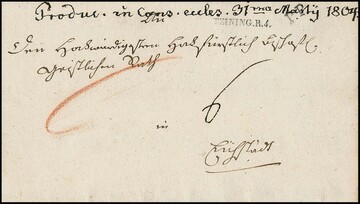 Product. in Cons. eccles. 31ma Maÿ 1804
An
TEINING.R.4.
Den Hochwürdigsten Hochfürstlich Bischöfl.
geistlichen Rath
6
in
Eichstädt